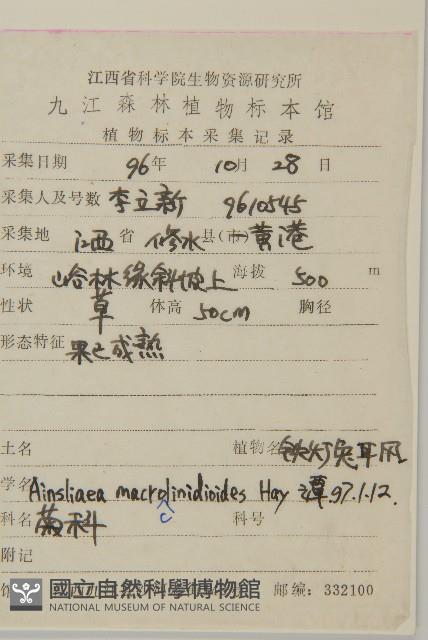 江西省科学院生物资源研究所
九江森林植物标本馆
植物标本采集记录
采集日期 96年 10月 28日
采集人及号数 李立新 9610545
采集地 江西省 修水县(市) 黄港
环境 山谷林缘斜坡上 海拔 500 m
性状 草 体高 50cm 胸径
形态特征 果已成熟
土名 植物名 铁灯兔耳风
学名 Ainsliaea macroclinidioides Hay 谭.97.1.12.
科名 菊科 科号
附记
邮编:332100
國立自然科學博物館
NATIONAL MUSEUM OF NATURAL SCIENCE